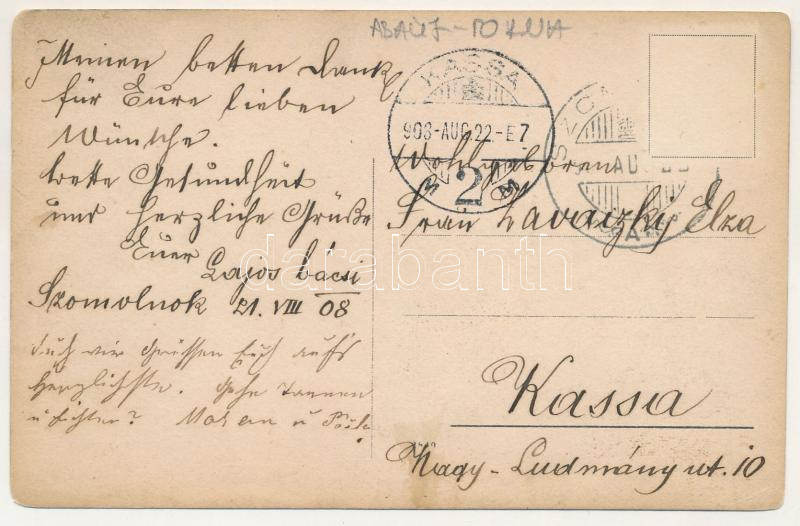 ABAÚJ-TORNA
Meinen besten Dank
für Eure lieben
Wünsche.
beste Gesundheit
und herzliche Grüße
Euer Lajos bácsi
Szomolnok 21. VIII 08
Grüssen Euch aufs
Herzlichste.
KASSA
908-AUG.22-E7
2
Wohlgeboren
Frau Zavaczky Elza
Kassa
Nagy-Ludmány ut. 10
darabanth